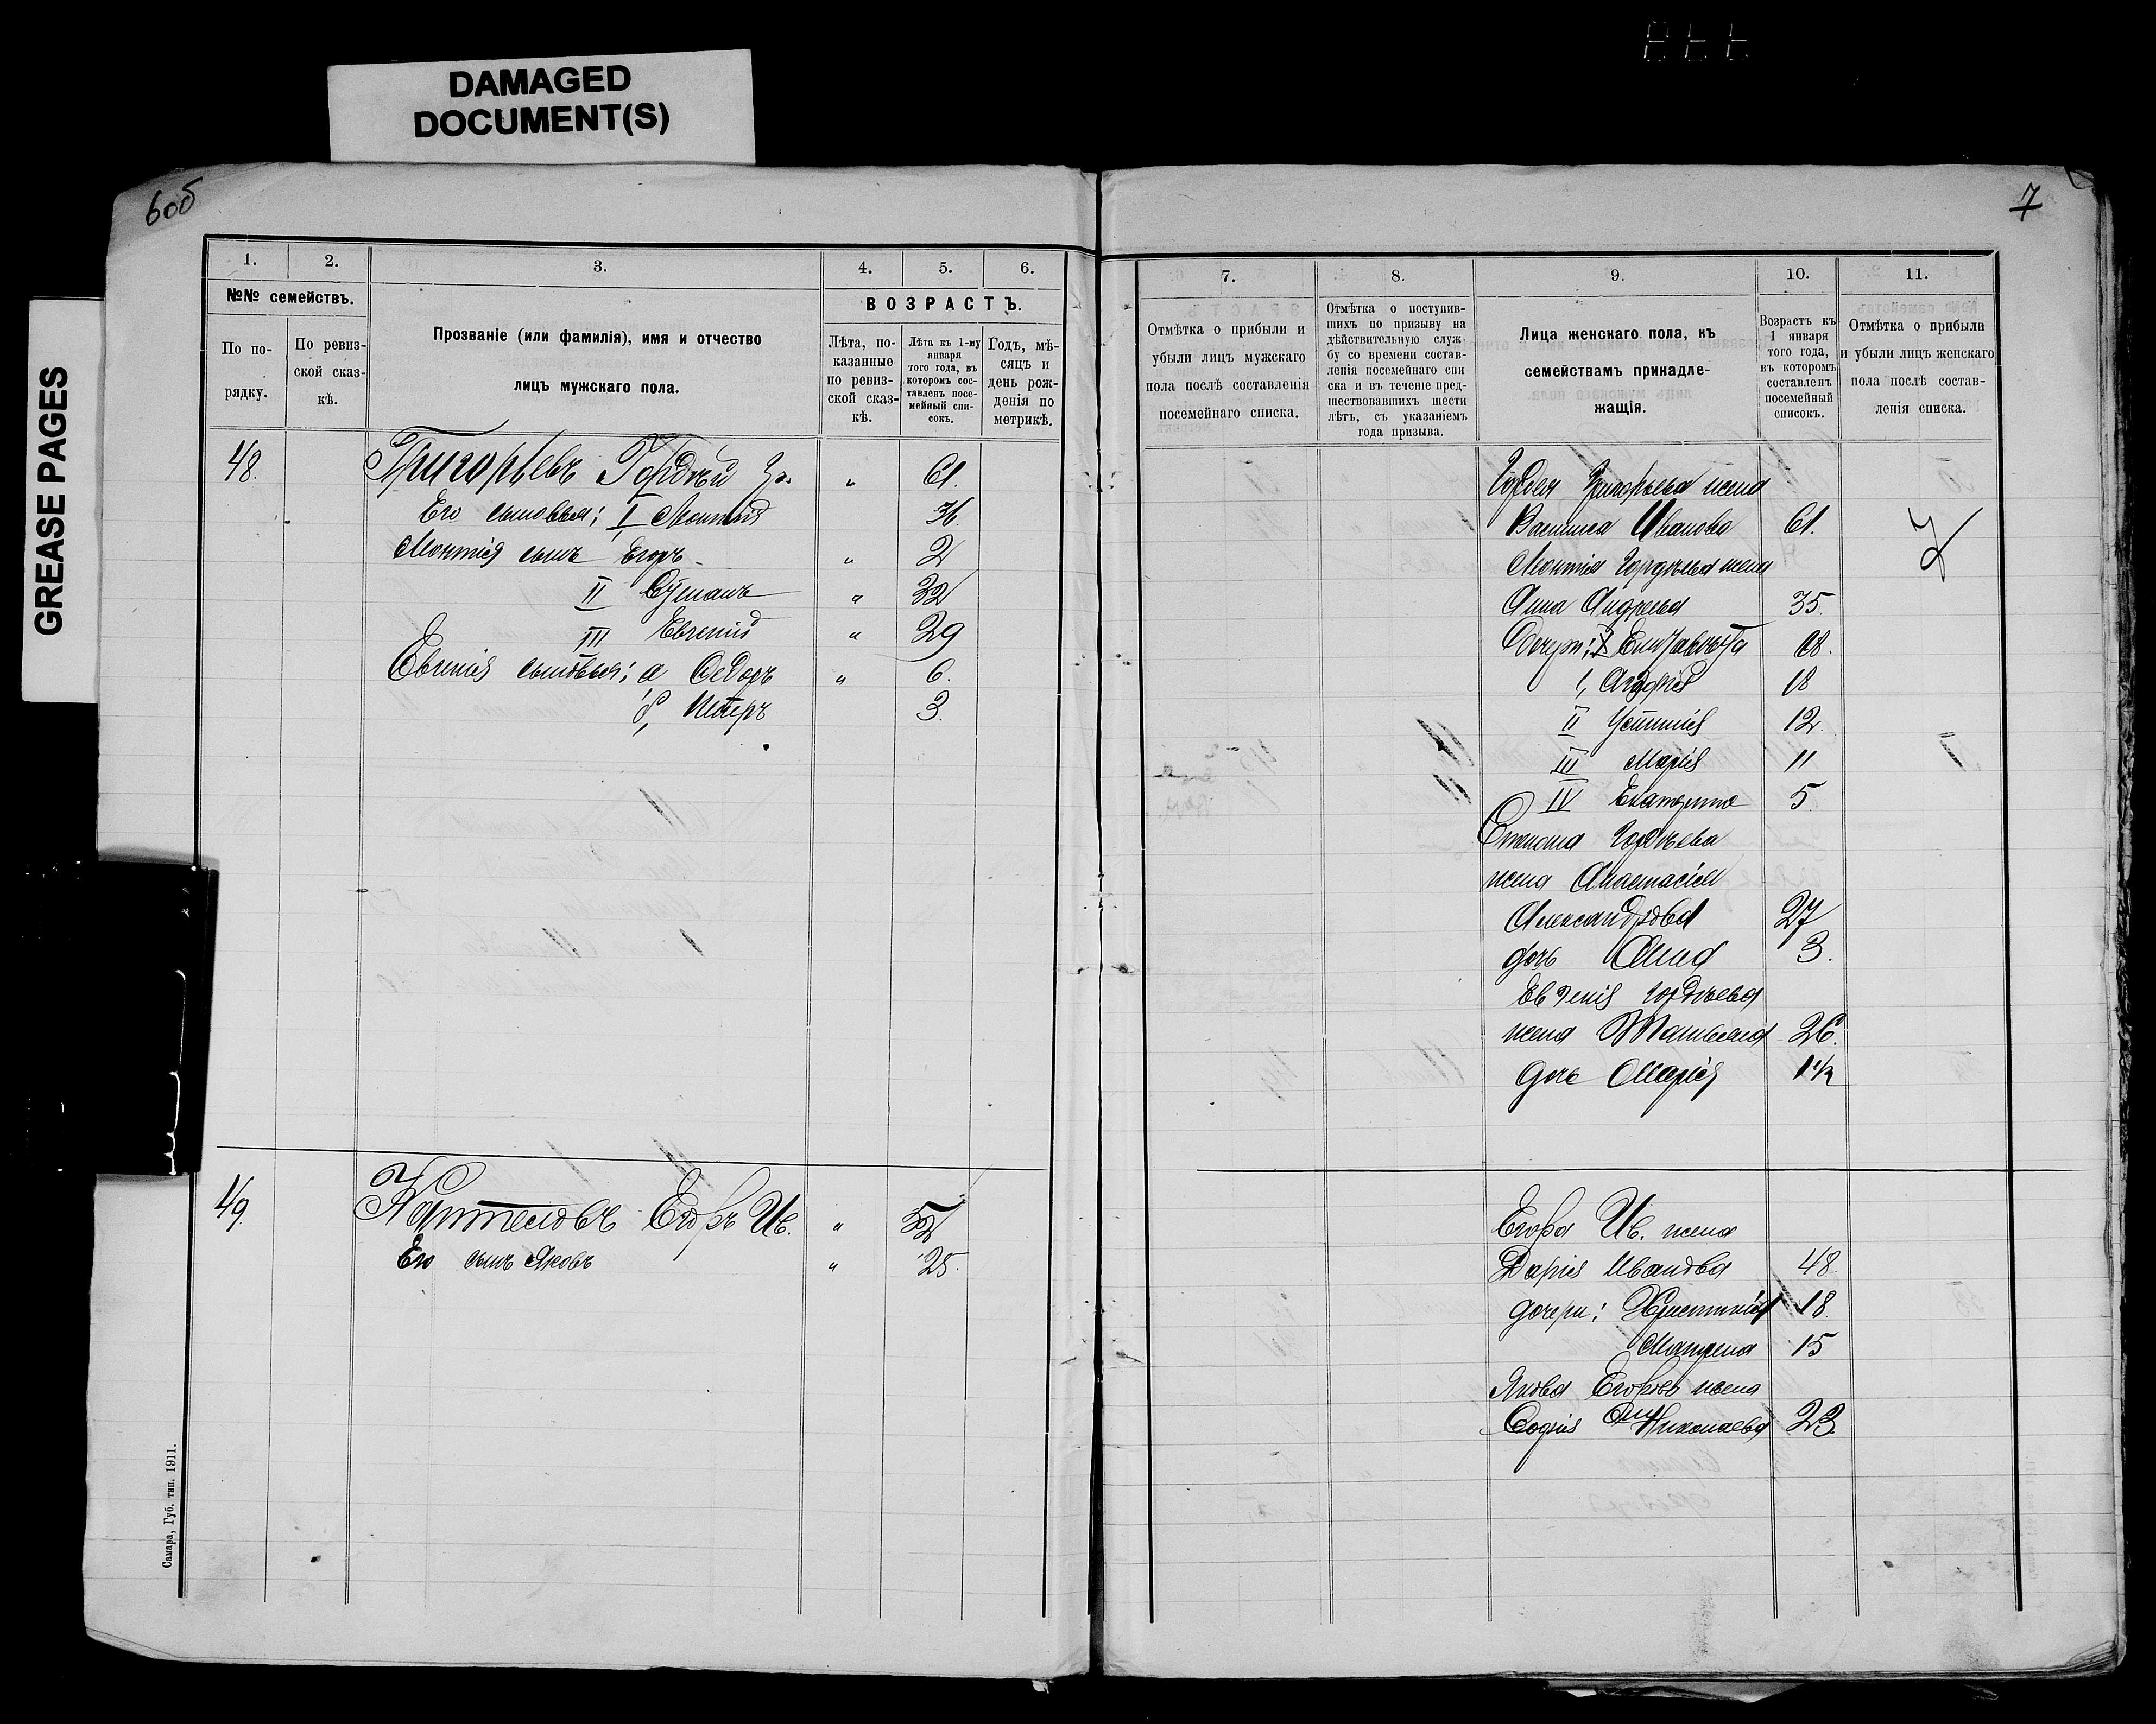 DAMAGED
DOCUMENT(S)
GREASE PAGES
6об
1.
2.
3.
4.
5.
6.
№№ семействъ.
По по-
рядку.
По ревиз-
ской сказ-
кѣ.
Прозваніе (или фамилія), имя и отчество
лицъ мужскаго пола.
ВОЗРАСТЪ.
Лѣта, по-
казанные
по ревиз-
ской сказ-
кѣ.
Лѣта къ 1-му
января
того года, въ
которомъ сос-
тавленъ посе-
мейный спи-
сокъ.
Годъ, мѣ-
сяцъ и
день рож-
денія по
метрикѣ.
48. Григорьевъ Гордѣй Гр. " 61.
Его сыновья: I Леонтій 36.
Леонтія сынъ Егоръ " 2
II " 32
III Евгеній " 29
Евгенія сыновья: а Ѳедоръ " 6.
б, Петръ 3.
49. Егоръ Ив. " 52
Его сынъ Яковъ " 25.
Самара, Губ. тип. 1911.
7
7.
8.
9.
10.
11.
Отмѣтка о прибыли и
убыли лицъ мужскаго
пола послѣ составленія
посемейнаго списка.
Отмѣтка о поступив-
шихъ по призыву на
дѣйствительную служ-
бу со времени состав-
ленія посемейнаго спи
ска и въ теченіе пред-
шествовавшихъ шести
лѣтъ, съ указаніемъ
года призыва.
Лица женскаго пола, къ
семействамъ принадле-
жащія.
Возрастъ къ
1 января
того года,
въ которомъ
составленъ
посемейный
списокъ.
Отмѣтка о прибыли
и убыли лицъ женскаго
пола послѣ состав-
ленія списка.
Гордея Григорьева жена
Василиса Иванова 61.
Леонтія Гордѣева жена
Анна Андреева 35.
Дочери: Елизавета 18.
I, 18
II Устинія 12.
III Марія 11
IV Екатерина 5.
Степана Гордѣева
жена Анастасія
Александрова 27
дочь Анна 3.
Евгенія Гордѣева
жена 26.
дочь Марія 1½
Егора Ив. жена
Дарія Иванова 48.
дочери: Христинія 18.
Матрена 15
Якова Егорова жена
Софія Николаева 23.